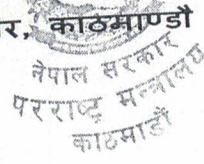 र, काठमाण्डौ
नेपाल सरकार
परराष्ट्र मन्त्रालय
काठमाडौं